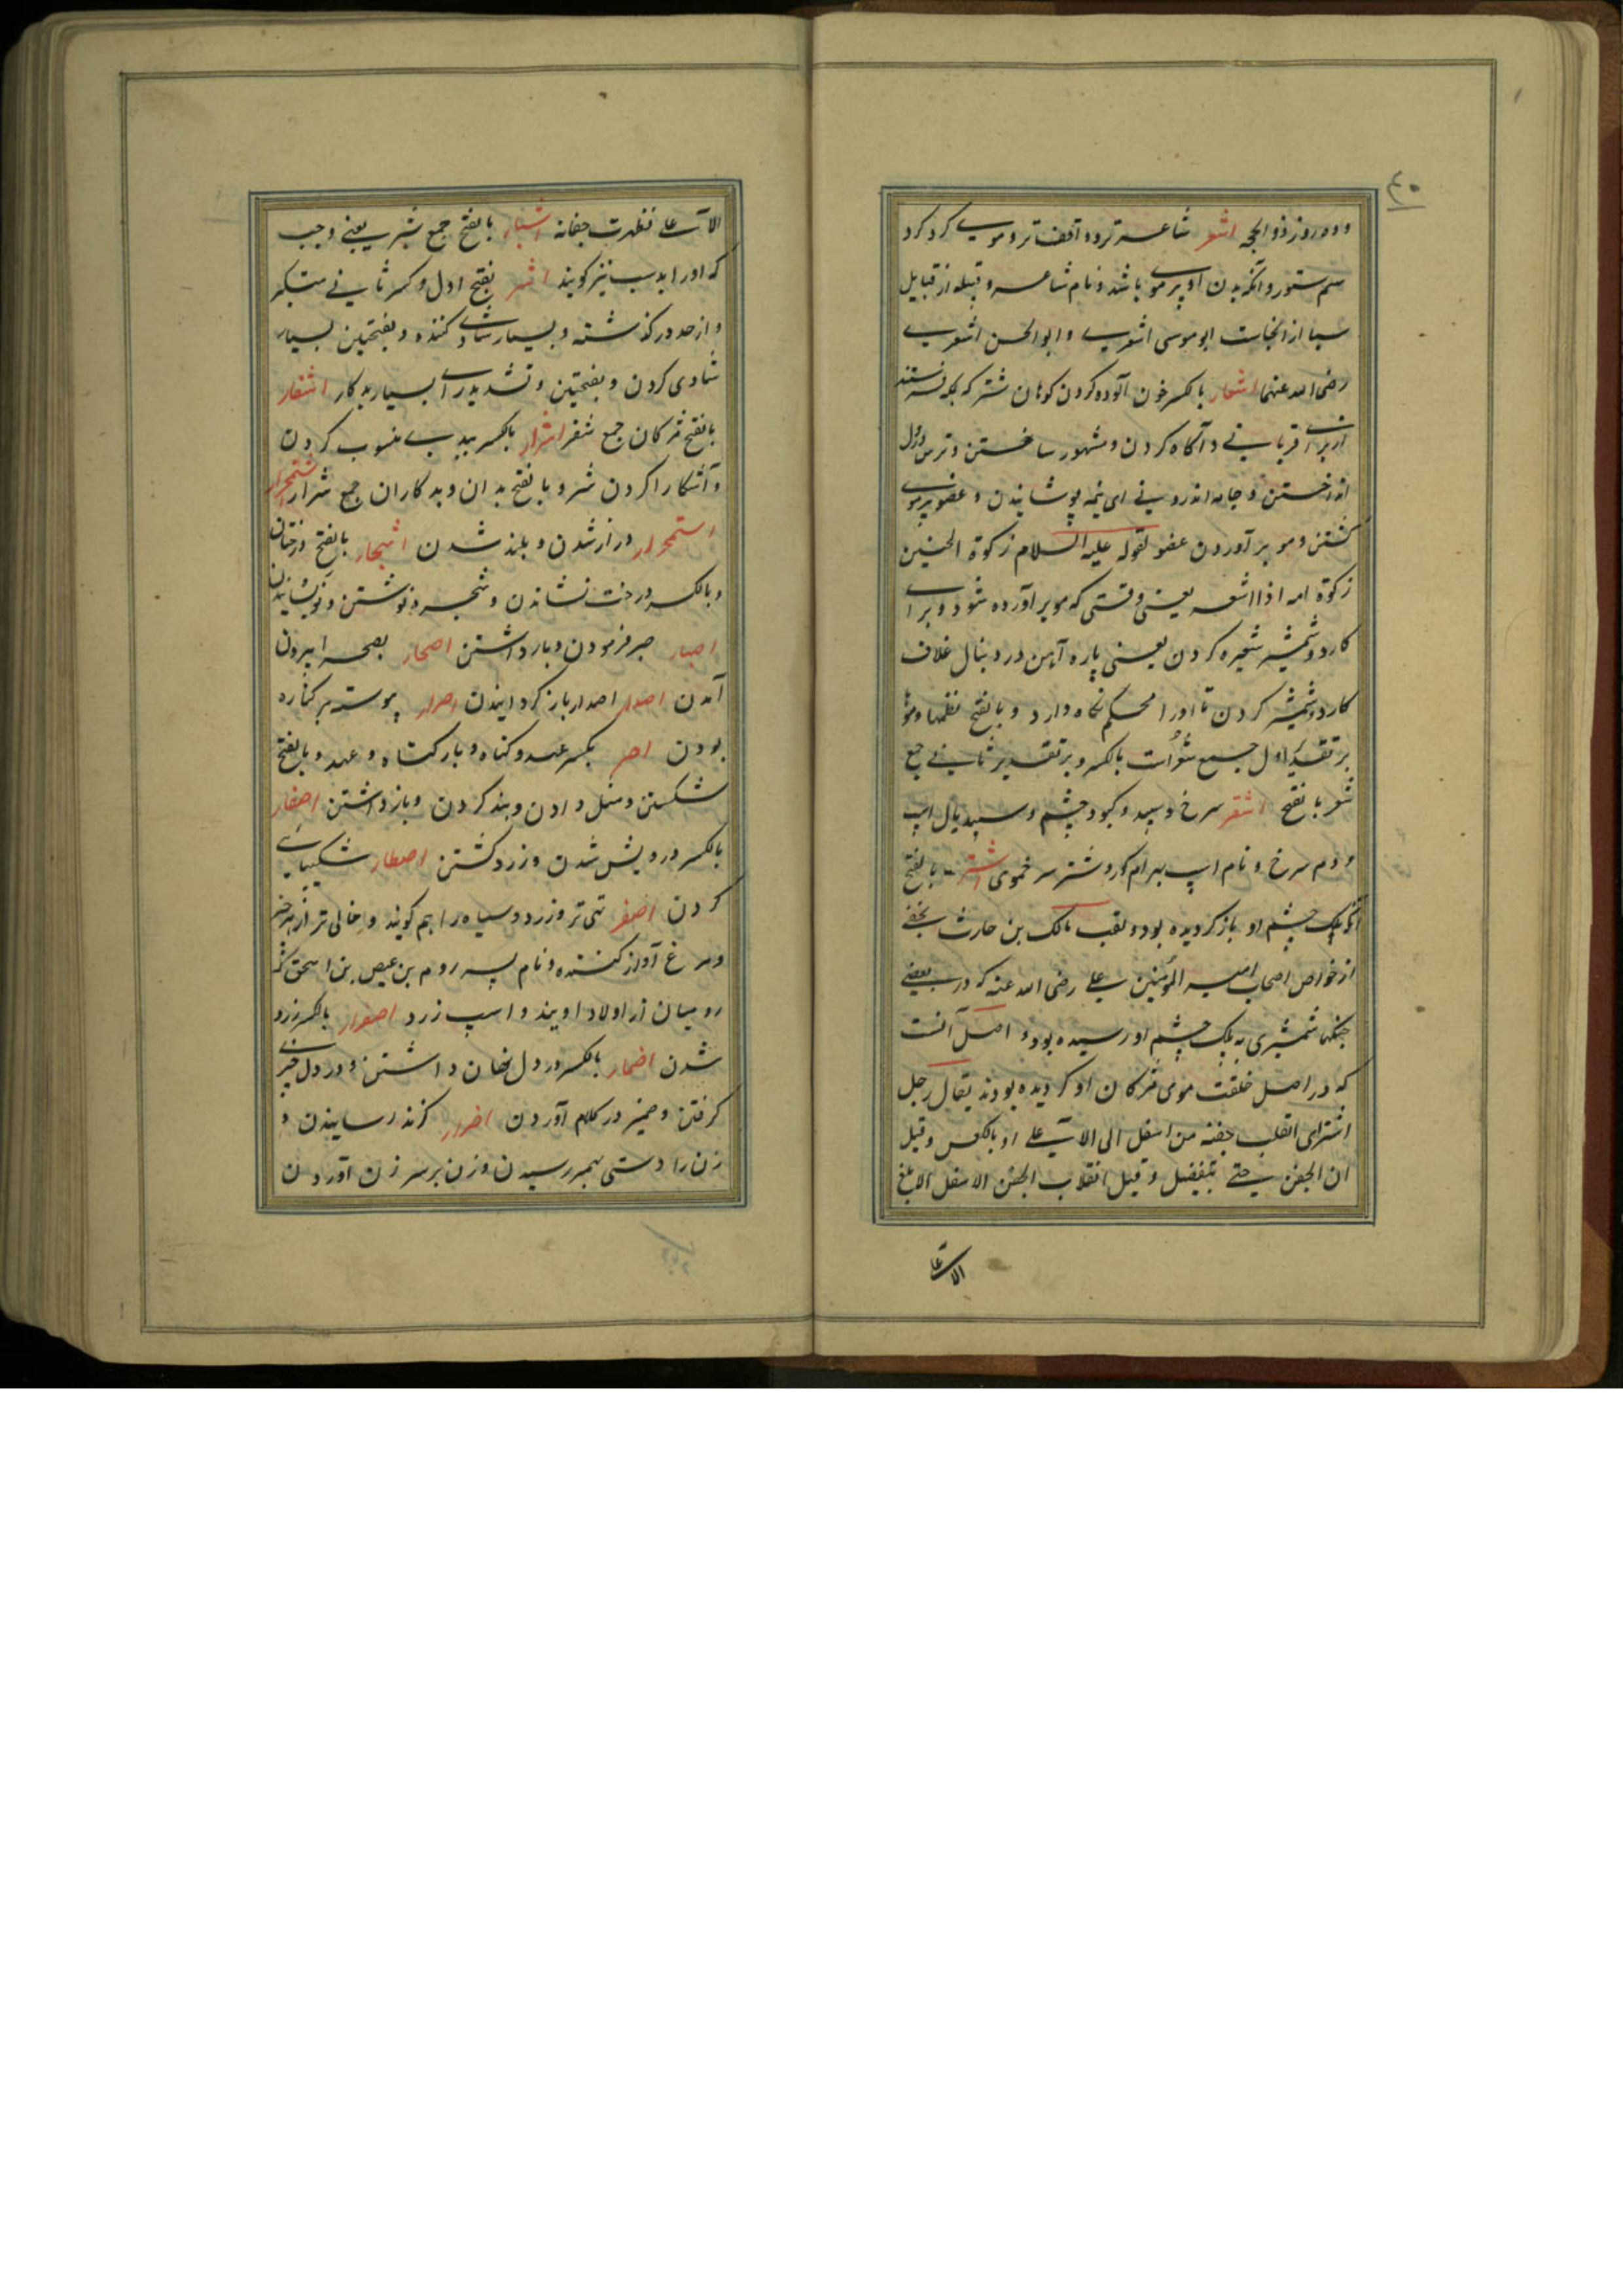 ۴۰
وده روز ذوالحجه اشعر شاعرتر و واقف‌تر و موی کرد کرد
سم ستور و آنکه بدن او پرموی باشد و نام شاعر و قبیله از قبایل
سبا از انجاست ابوموسی اشعری و ابوالحسن اشعری
رضی الله عنهما اشعار بالکسر خون آلوده کردن کوهان شتر که بمکه فرستند
از برای قربانی و آگاه کردن و مشهور ساختن و ترس در دل
انداختن و جامه اندرونی ای نیمه پوشانیدن و عضو پرموی
گشتن و مو برآوردن عضو لقوله علیه السلام زکوة الجنین
زکوة امه اذا اشعر یعنی وقتی که مو برآورده شود و برای
کارد و شمشیر شعیره کردن یعنی پاره آهن در دنبال غلاف
کارد و شمشیر کردن تا او را محکم نگاه دارد و بالفتح نظمها و موها
بر تقدیر اول جمع شعرات بالکسر و بر تقدیر ثانی جمع
شعر بالفتح اشقر سرخ و سپید و کبود چشم و سپید یال اسپ
و دم سرخ و نام اسپ بهرام گور و شتر سرخ‌موی اشتر بالفتح
آنکه پلک چشم او باز گردیده بود و لقب مالک بن حارث نخعی
از خواص اصحاب امیر المؤمنین علی رضی الله عنه که در بعضی
جنگها شمشیری به پلک چشم او رسیده بود و اصل آنست
که در اصل خلقت موی مژگان او گردیده بودند یقال رجل
اشتر ای انقلب جفنه من اسفل الی الاعلی او بالعکس و قیل
ان الجفن حتی ینفصل و قیل انقلاب الجفن الاسفل الابلغ
الاعلی
الاعلی فظهرت جفانه اشبار بالفتح جمع شبر یعنی وجب
که او را بدست نیز گویند اشر بفتح اول و کسر ثانی متکبر
و از حد درگذشته و بسیار شادی کننده و بفتحتین بسیار
شادی کردن و بفتحتین و تشدید رای بسیار بدکار اشفار
بالفتح مژگان جمع شفر اشرار بالکسر ببدی منسوب کردن
و آشکارا کردن شر و بالفتح بدان و بدکاران جمع شرار
استمحرار دراز شدن و بلند شدن اشجار بالفتح درختان
و بالکسر درخت نشاندن و شجره نوشتن و نویسانیدن
اصبار صبر فرمودن و بازداشتن اصحار بصحرا بیرون
آمدن اصدار اصدار باز گردانیدن اصرار پیوسته بر گناه
بودن اصر بکسر عهد و گناه و بار گناه و عهد و بالفتح
شکستن و میل دادن و بند کردن و بازداشتن اصفار
بالکسر درویش شدن و زرد گشتن اصطبار شکیبایی
کردن اصفر تهی‌تر و زرد و سیاه را هم گویند و خالی‌تر از هر چیز
و مرغ آواز کننده و نام پسر روم بن عیص بن اسحق که
رومیان از اولاد اویند و اسپ زرد اصفرار بالکسر زرد
شدن اضمار بالکسر در دل نهان داشتن و در دل چیزی
گرفتن و ضمیر در کلام آوردن اضرار گزند رسانیدن و
زن را دستی بهم رسیدن و زن بر سر زن آوردن